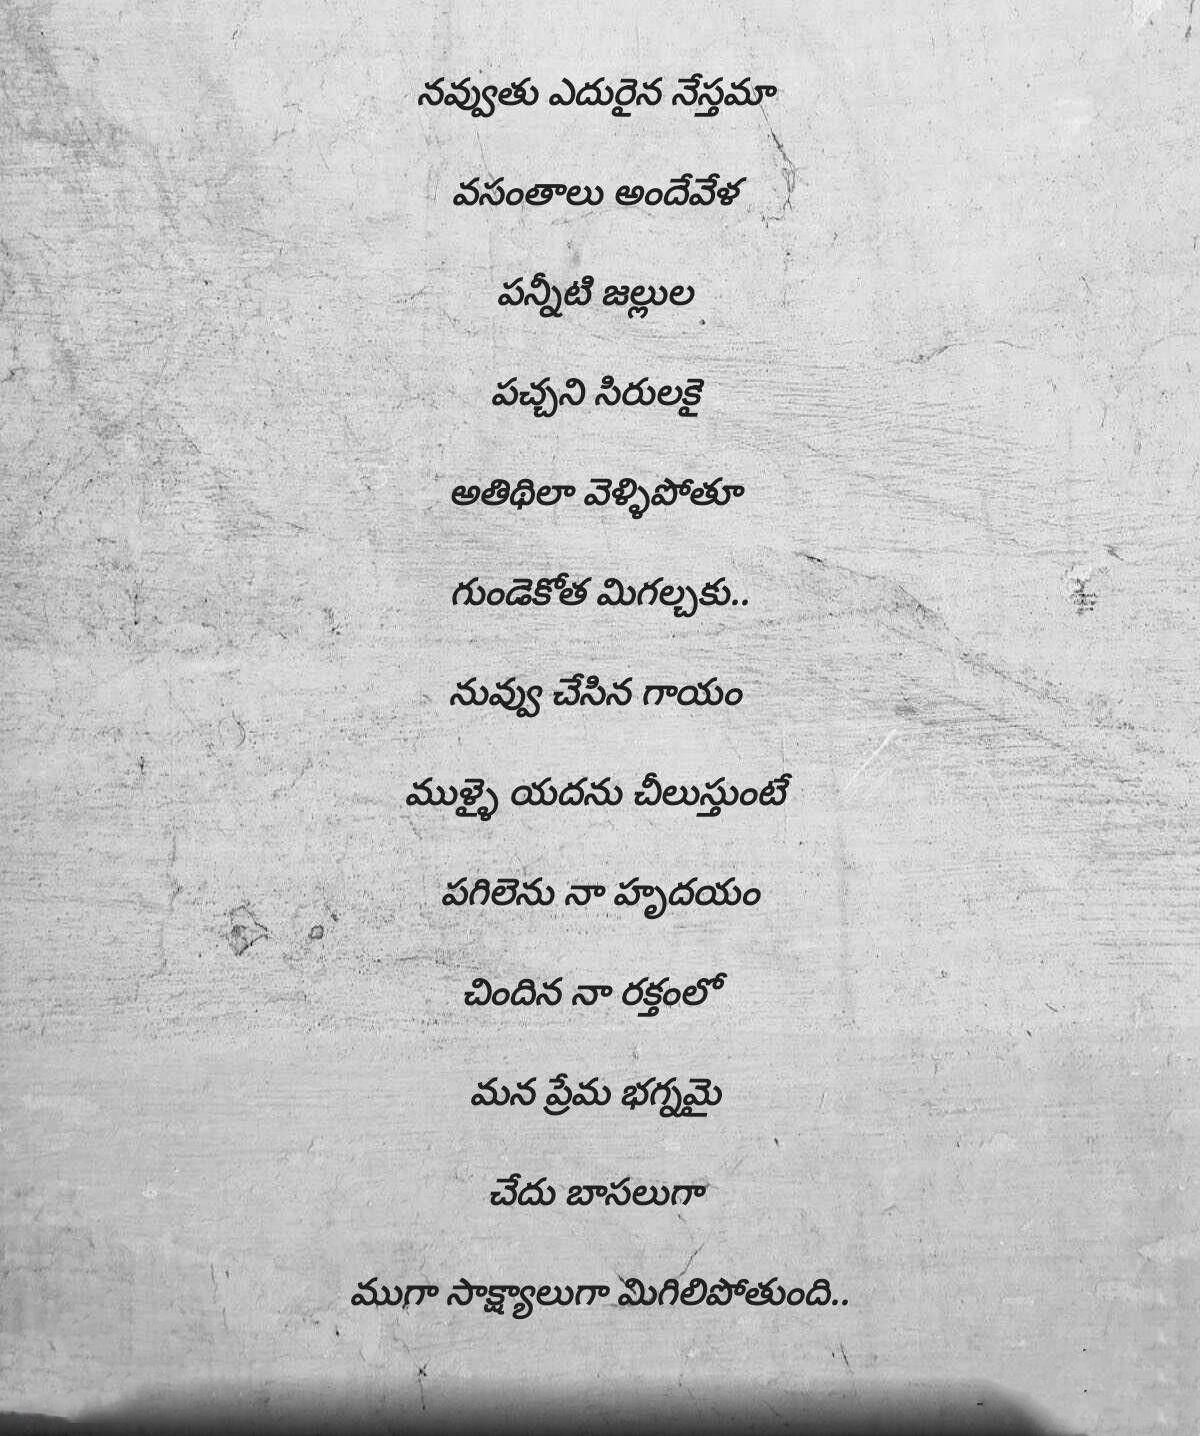 నవ్వుతు ఎదురైన నేస్తమా
వసంతాలు అందేవేళ
పన్నీటి జల్లుల
పచ్చని సిరులకై
అతిథిలా వెళ్ళిపోతూ
గుండెకోత మిగల్చకు..
నువ్వు చేసిన గాయం
ముళ్ళై యదను చీలుస్తుంటే
పగిలెను నా హృదయం
చిందిన నా రక్తంలో
మన ప్రేమ భగ్నమై
చేదు బాసలుగా
ముగా సాక్ష్యాలుగా మిగిలిపోతుంది..